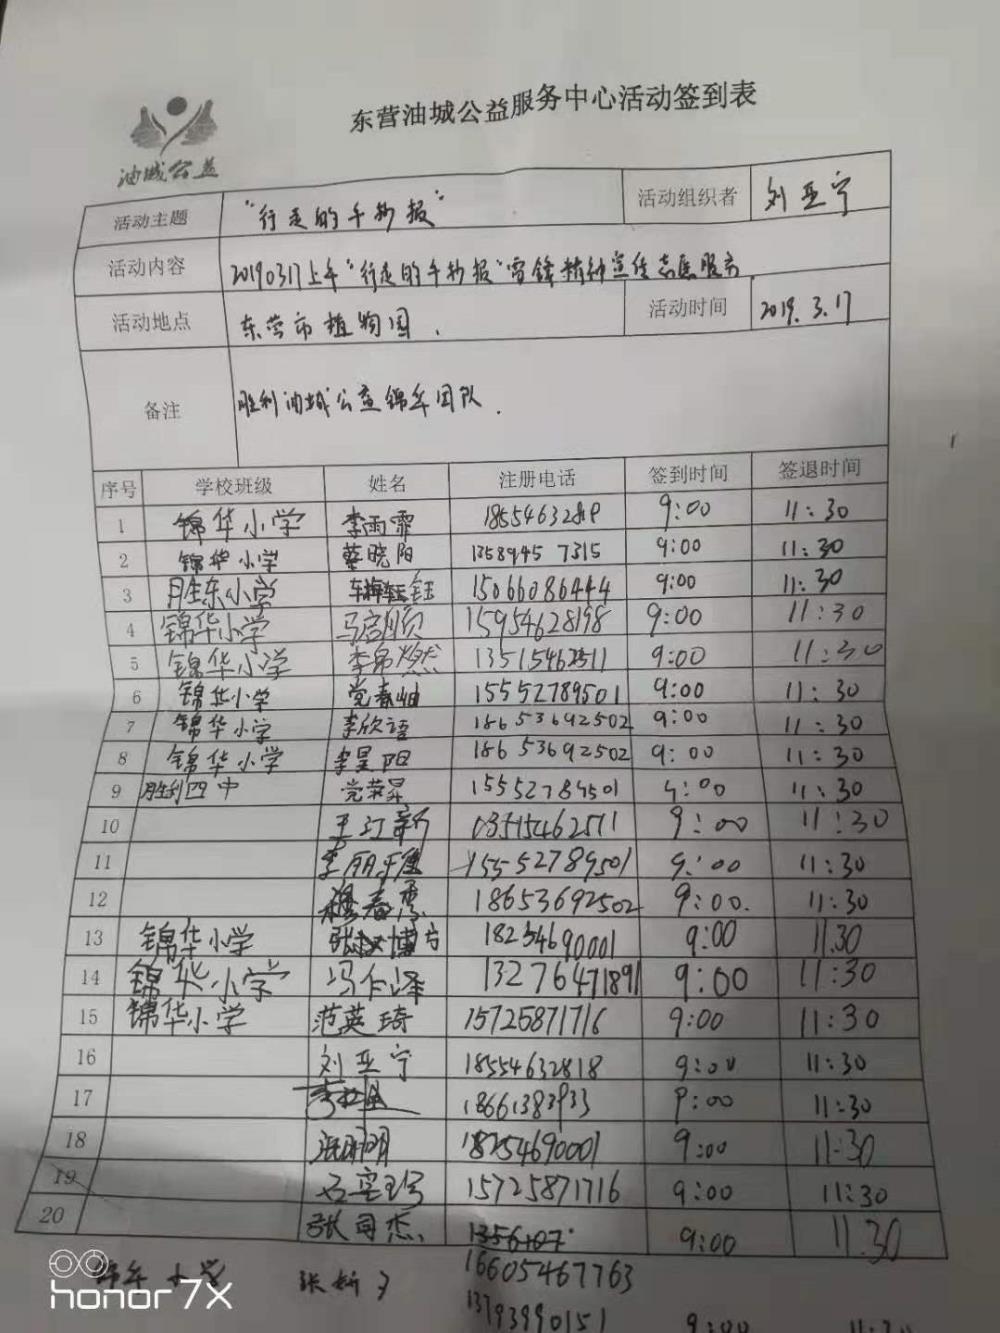 东营油城公益服务中心活动签到表
油城公益
活动主题 "行走的手抄报" 活动组织者 刘亚宁
活动内容 20190317上午"行走的手抄报"雷锋精神宣传志愿服务.
活动地点 东营市植物园. 活动时间 2019.3.17
备注 胜利油城公益锦华团队.
序号 学校班级 姓名 注册电话 签到时间 签退时间
1 锦华小学 李雨霏 9:00 11:30
2 锦华小学 蔡晓阳 13589457315 9:00 11:30
3 胜东小学 15066086444 9:00 11:30
4 锦华小学 马启顺 15954628198 9:00 11:30
5 锦华小学 9:00 11:30
6 锦华小学 15552789501 9:00 11:30
7 锦华小学 李欣语 18653692502 9:00 11:30
8 锦华小学 李昊阳 18653692502 9:00 11:30
9 胜利四中 党荣昇 15552789501 9:00 11:30
10 9:00 11:30
11 15552789501 9:00 11:30
12 穆春秀 18653692502 9:00. 11:30
13 锦华小学 18254690001 9:00 11.30
14 锦华小学 13276471891 9:00 11:30
15 锦华小学 范英琦 15725871716 9:00 11:30
16 刘亚宁 18554632818 9:00 11:30
17 9:00 11:30
18 18254690001 9:00 11:30
19 15725871716 9:00 11:30
20 张司杰 9:00 11.30
16605467763
锦华小学
13793990151 9:00 11:30
honor 7X